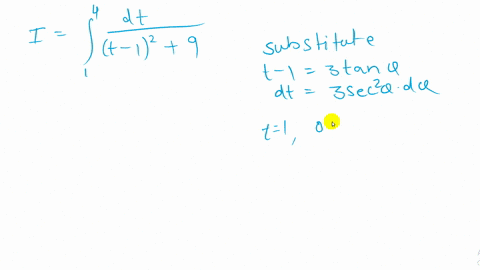 I = ∫₁⁴ dt / ((t-1)² + 9)
substitute
t-1 = 3tanθ
dt = 3sec²θ·dθ
t=1, 0